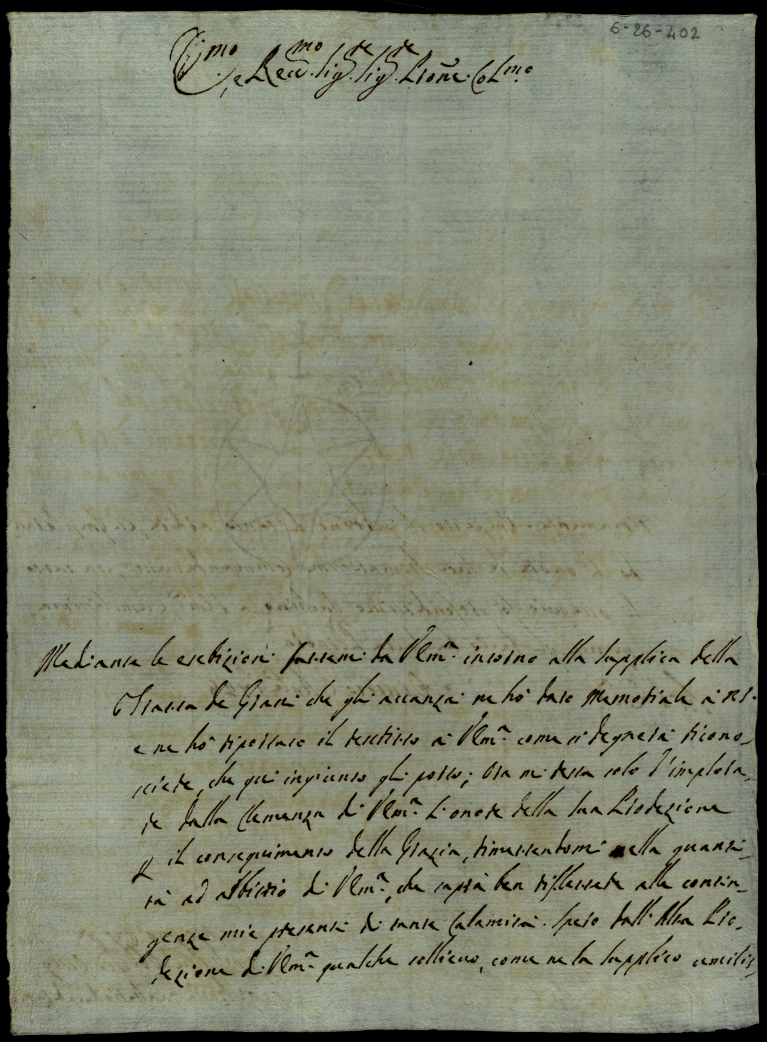 6-26-402
Ill.mo e Rev.mo Sig.re Sig.re P'rone Col.mo
Mediante le esebizioni fattemi da V. Em.a intorno alla supplica della
Tratta de Grani che gli avanzai ne hò dato Memoriale à N.S.
e ne hò riportato il rescritto à V. Em.a come si degnerà ricono-
scere, che qui ingiunto gli porto; Ora mi resta solo d'implora-
re dalla Clemenza di V. Em.a l'onore della sua Protezione
p il conseguimento della Grazia, rimettendomi nella quanti-
tà ad arbitrio di V. Em.a, che saprà ben riflettere alle contin-
genze mie presenti di tante Calamità. Spero dall'Alta Pro-
tezione di V. Em.a qualche sollievo, come ne la supplico umilis-